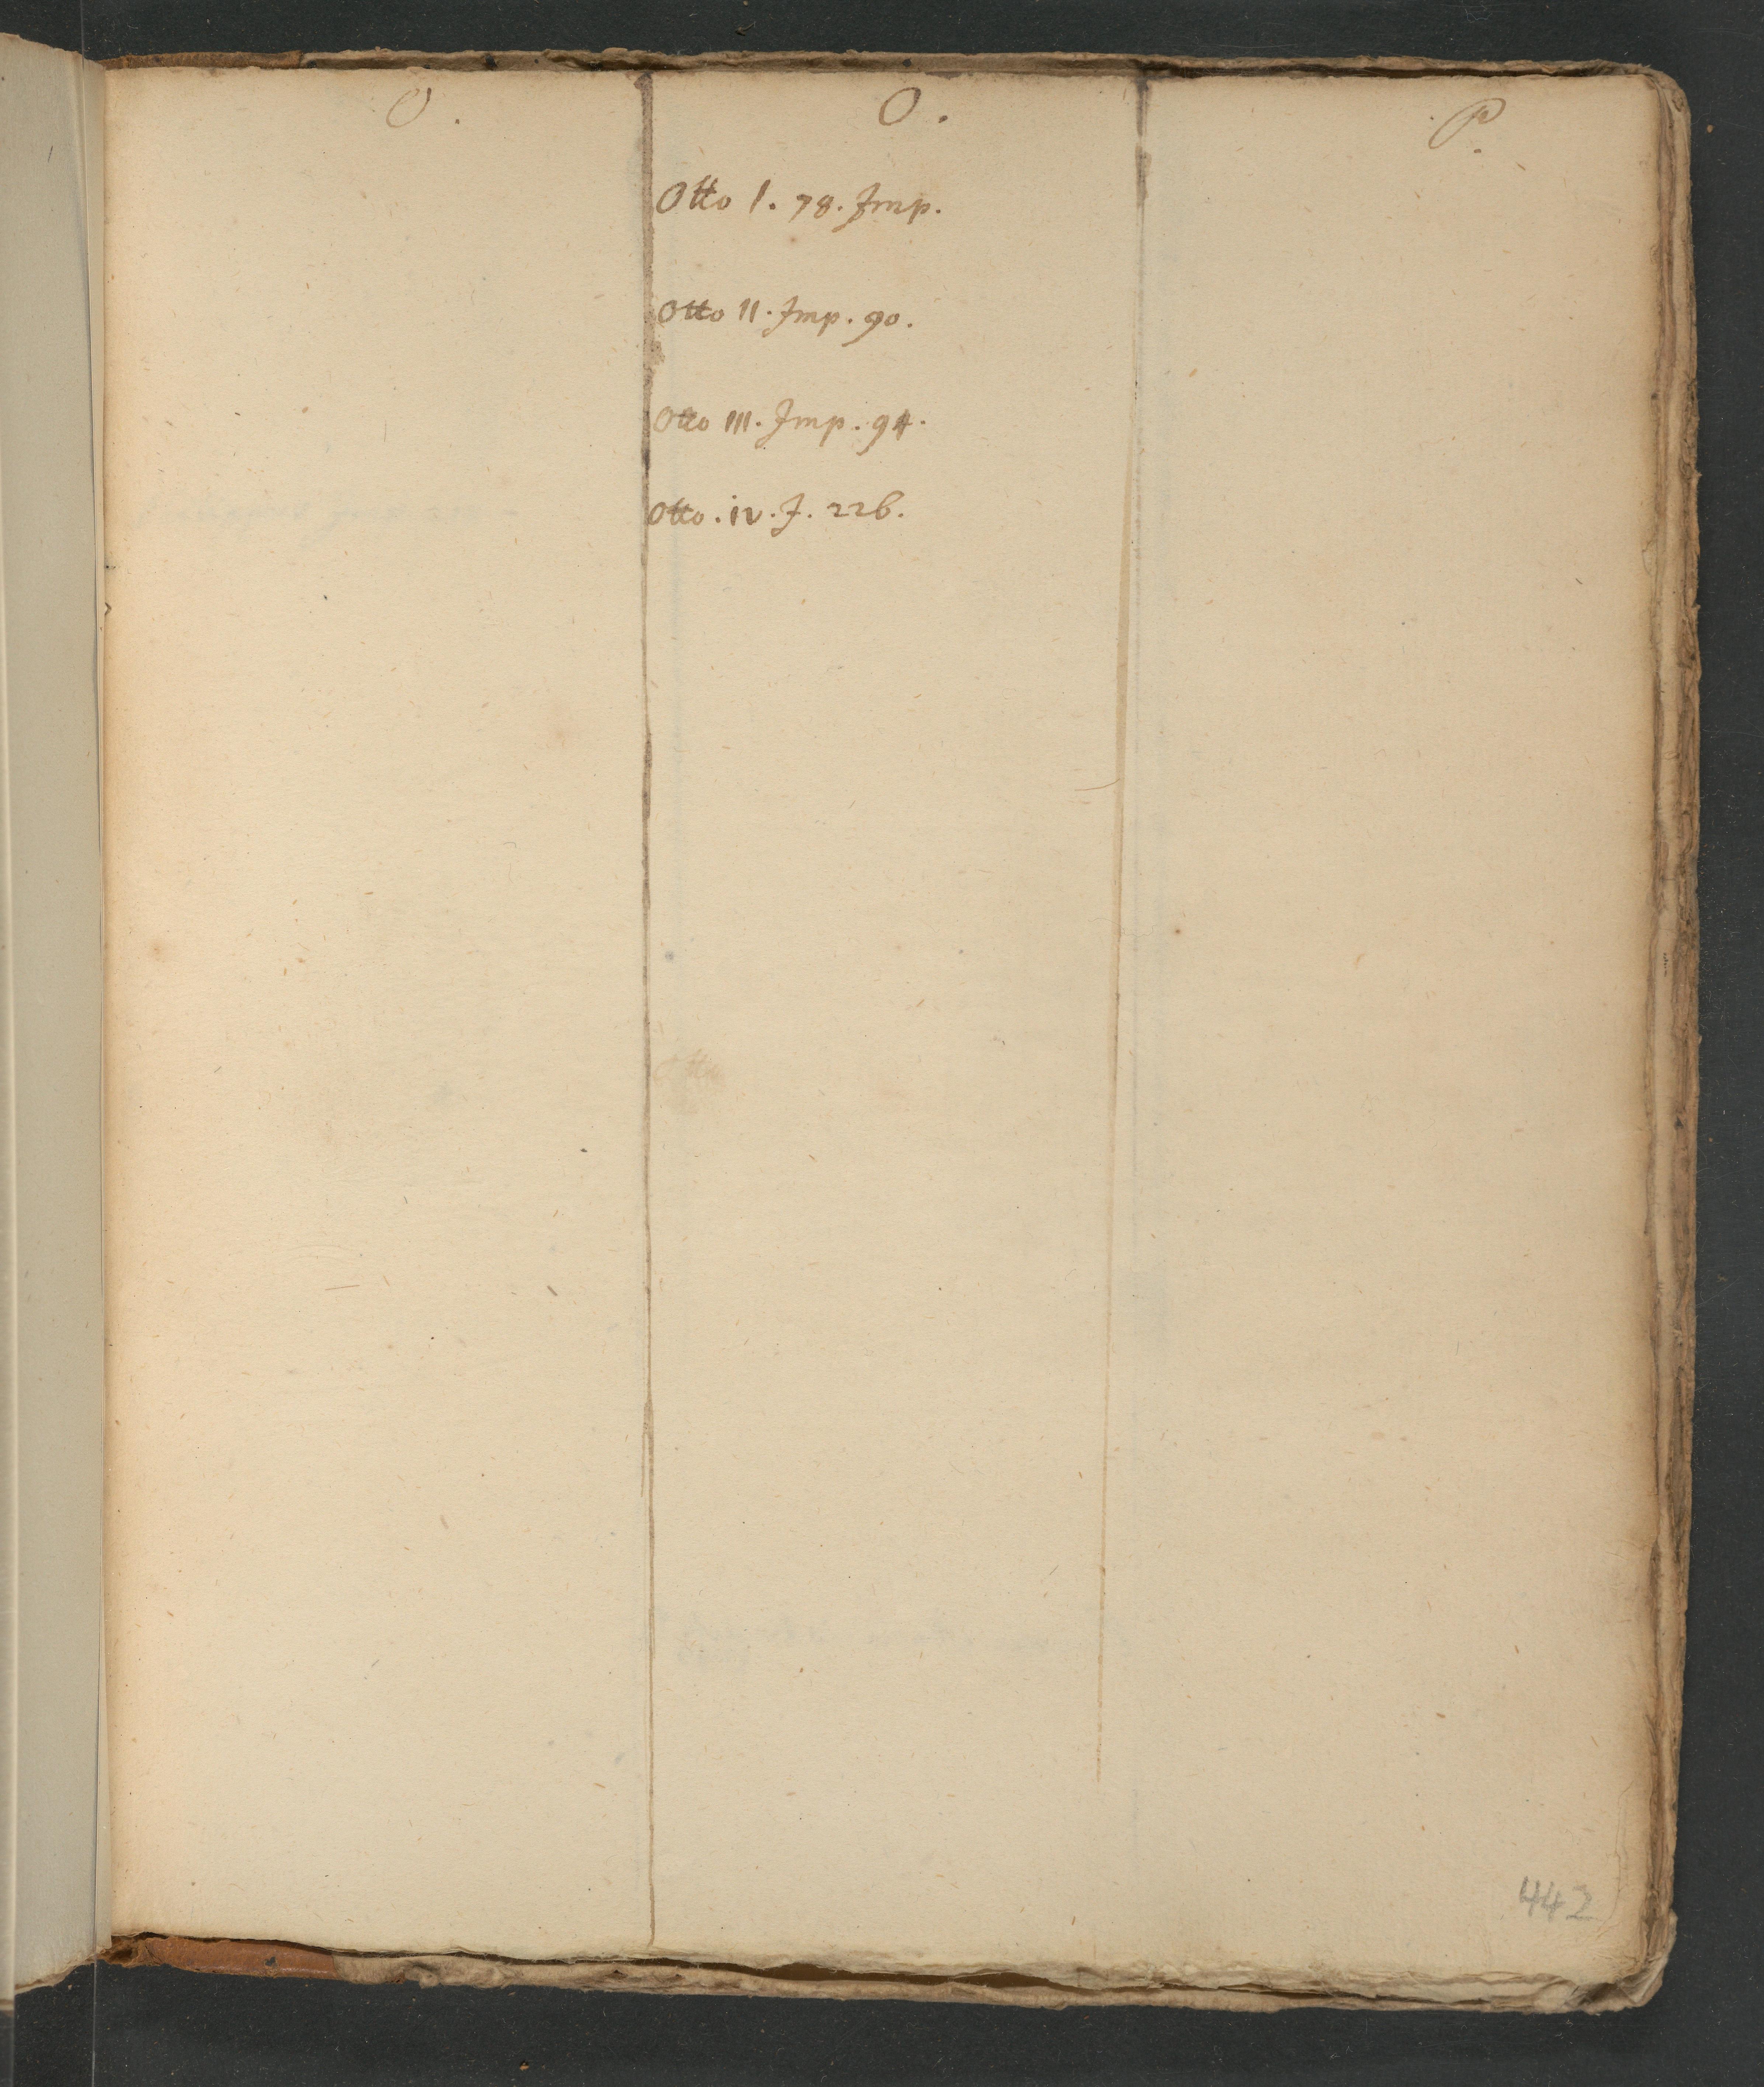 O.
O.
P.
Otto I. 78. Imp.
Otto II. Imp. 90.
Otto III. Imp. 94.
Otto. iv. I. 226.
Otto
442